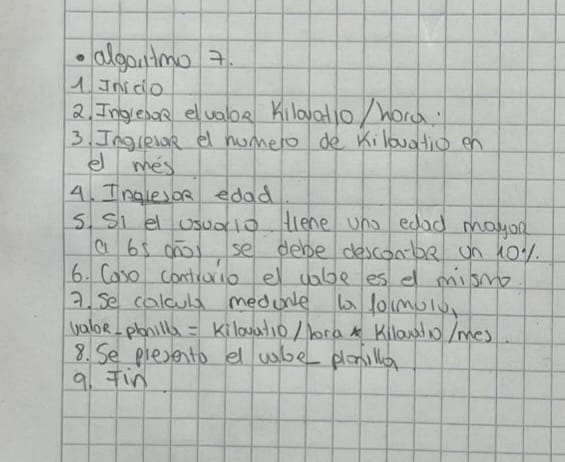 • algoritmo 7.
1. Inicio
2. Ingresar el valor Kilovatio/hora.
3. Ingresar el numero de Kilovatio en
el més
4. Ingresar edad.
5. Si el usuario tiene una edad mayor
a 65 años se debe descontar un 10%.
6. Caso contrario el valor es el mismo.
7. Se calcula mediante la formula,
valor_planilla = Kilovatio/hora * Kilovatio/mes.
8. Se presenta el valor_planilla.
9. Fin